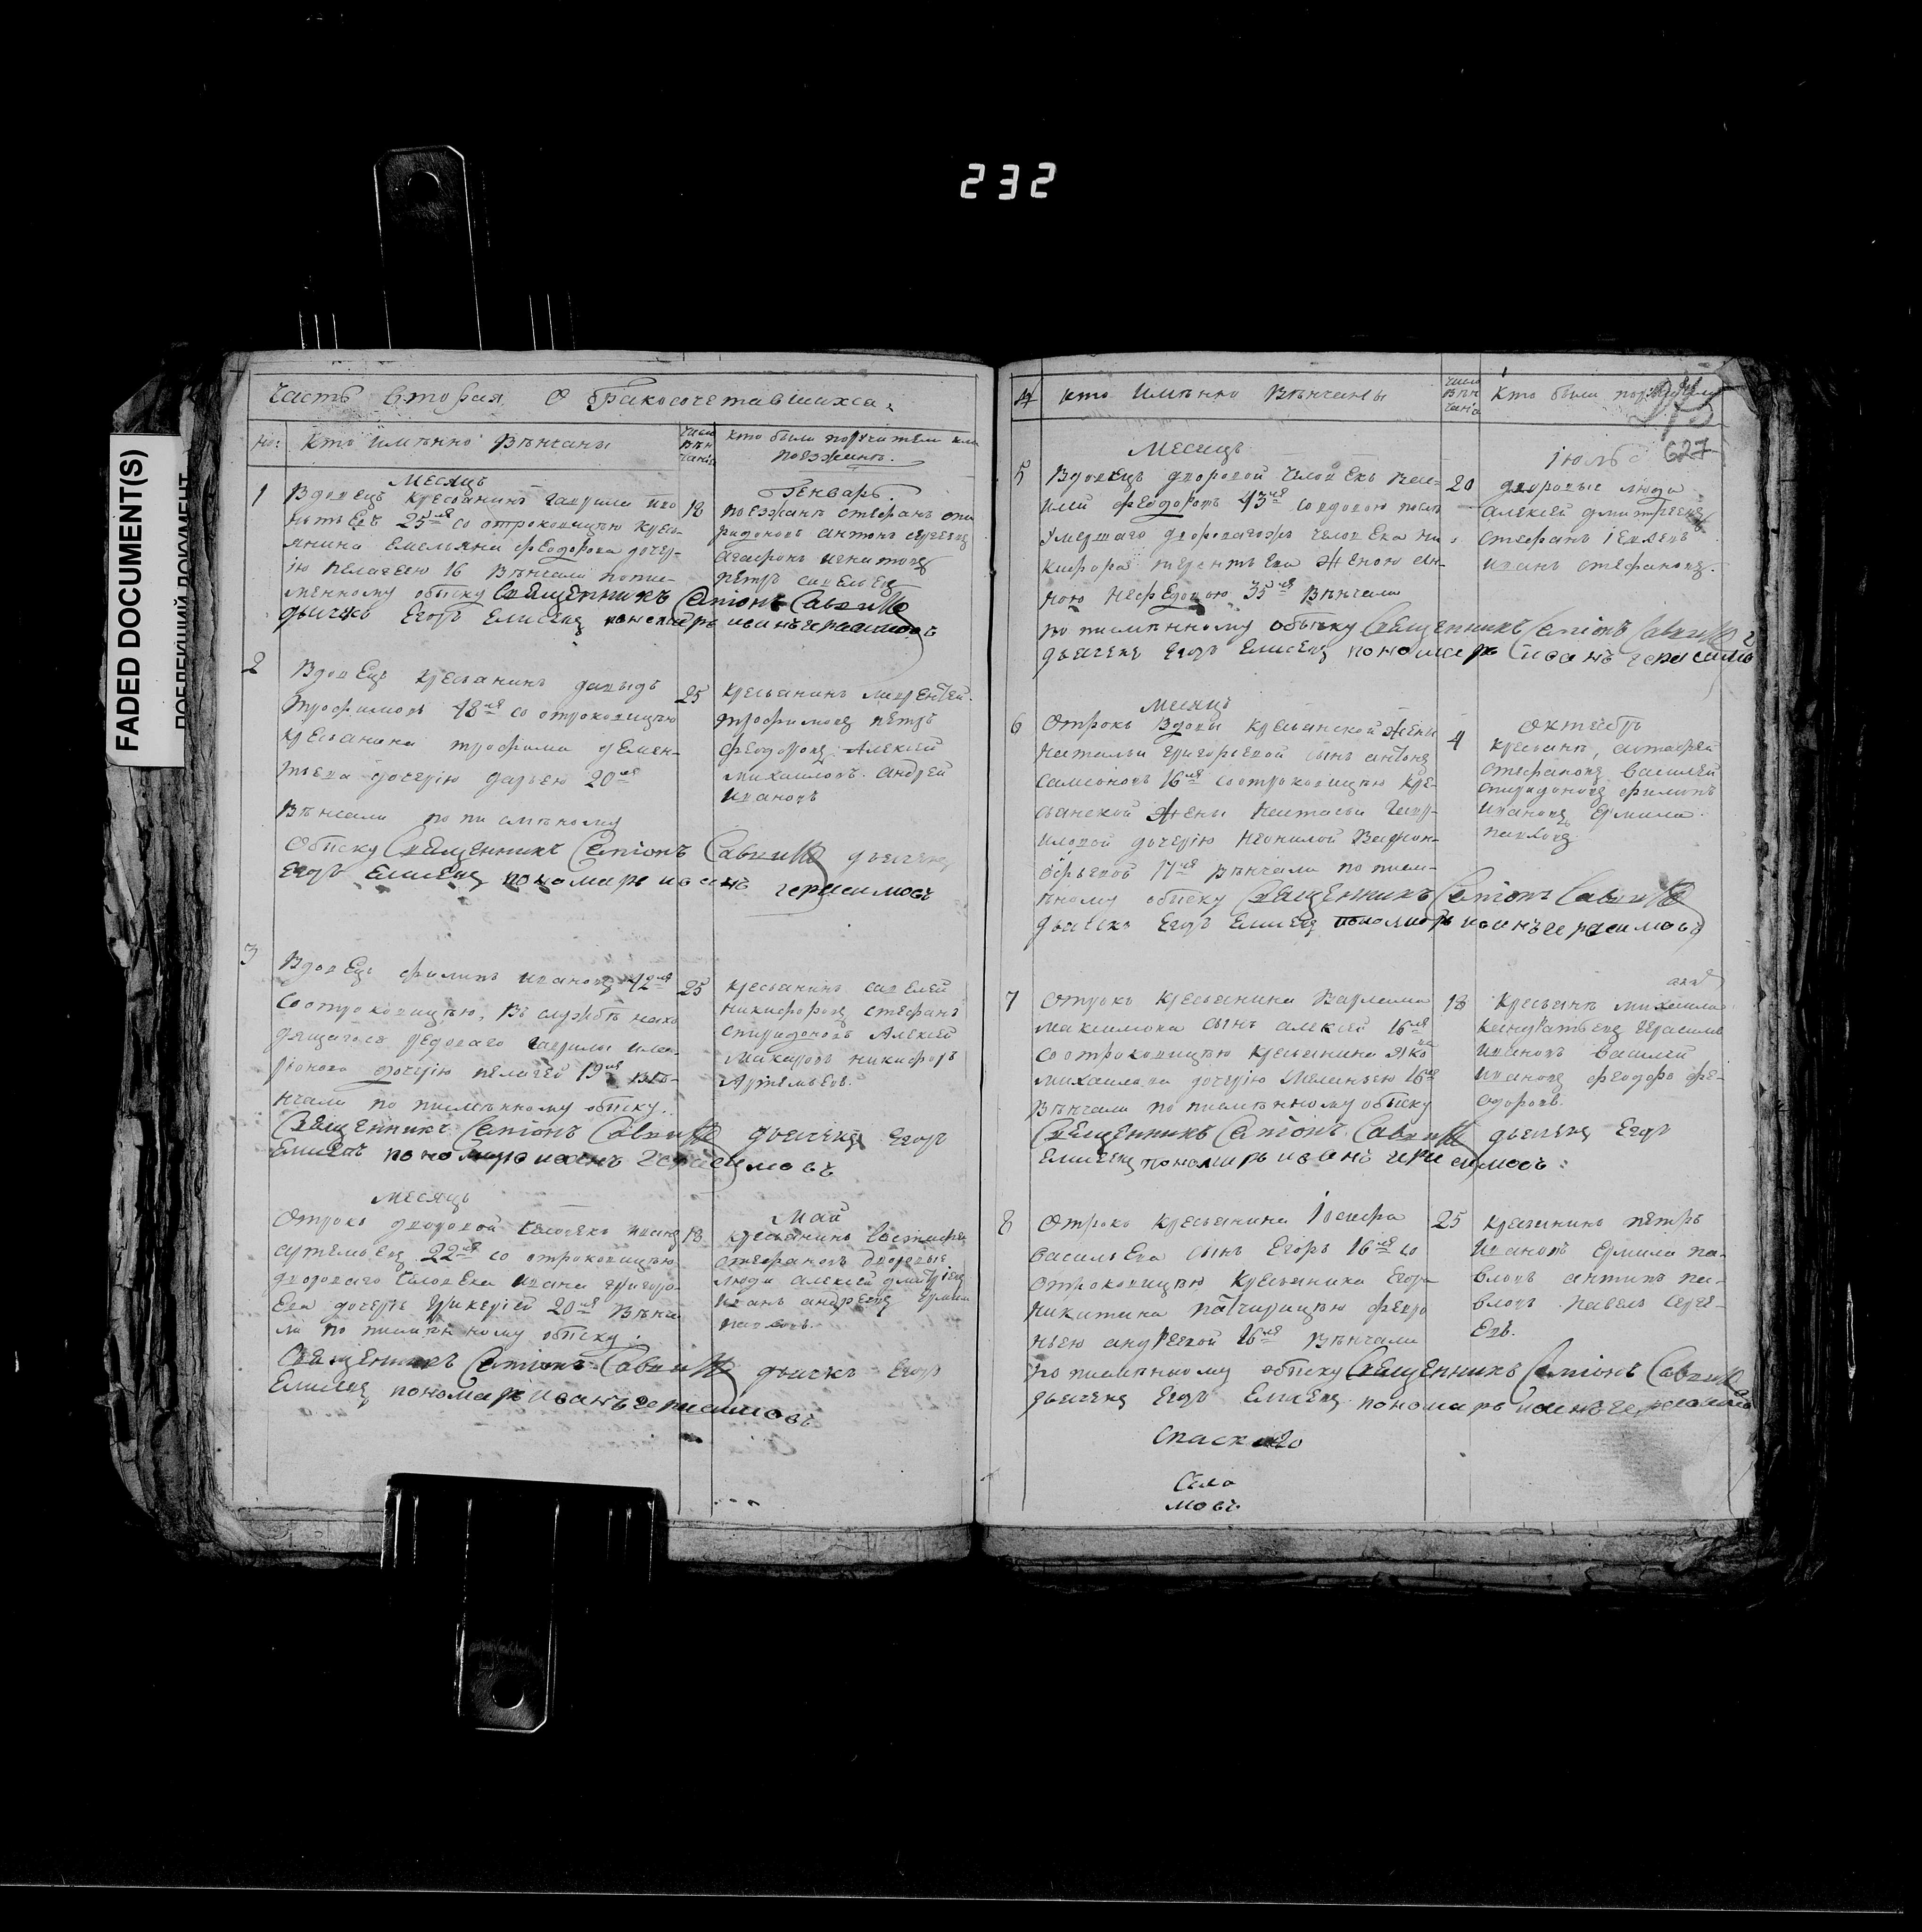 232
FADED DOCUMENT(S)
Часть вторая О бракосочетавшихся
№: Кто имѣнно вѣнчаны
Число вѣнчанія
Кто были поручители или
поезжанѣ.
Месяцъ
Генварь.
1
18
Вдовецъ крестьянинъ гаврила
25 лѣ со отроковицею кресть
янина Емельяна феодорова дочер-
ію пелагеею 16 вѣнчали по пис-
менному обыску Священникъ Семіонъ
дьячекъ Егоръ Елисеевъ пономарь иванъ герасимовъ
поезжанѣ стефанъ спи
ридоновъ антонъ сергеевъ
агафонъ игнатовъ
петръ савельевъ
2
25
Вдовецъ крестьянинъ давыдъ
трофимовъ 48 лѣ со отроковицею
крестьянина трофима демен-
тьева дочерію дарьею 20 лѣ
вѣнчали по писмѣному
обыску Священникъ Семіонъ дьячекъ
Егоръ Елисеевъ пономарь иванъ герасимовъ
крестьянинъ лаврентей
трофимовъ петръ
феодоровъ Алексей
михаиловъ. андрей
ивановъ
3
25
Вдовецъ филипъ ивановъ 42 лѣ
со отроковицею, въ службѣ нахо
дящагося рядоваго гаврилы
дочерію пелагеей 19 лѣ вѣ-
нчали по писмѣнному обыску.
Священникъ Семіонъ дьячекъ Егоръ
Елисеевъ пономарь иванъ герасимовъ
крестьянинъ савелей
никифоровъ стефанъ
спиридоновъ Алексей
макаровъ никифоръ
Артемьевъ.
Месяцъ
Май
18
Отрокъ дворовой человекъ иванъ
артемьевъ 22 лѣ со отроковицею
двороваго человека ивана григорь
ева дочерію гликеріей 20 лѣ вѣнча
ли по писмѣнному обыску.
Священникъ Семіонъ дьячекъ Егоръ
Елисеевъ пономарь иванъ герасимовъ
крестьянинъ
стефановъ дворовые
люди алексей дмитріевъ
иванъ андреевъ ермила
павловъ.
Кто имѣнно вѣнчаны
Число вѣнчанія
Кто были
627
Месяцъ
іюль
5
20
Вдовецъ дворовой человекъ васи-
лий феодоровъ 43 лѣ со вдовою послѣ
умершаго двороваго человека ни
кифора терентьева женою ан-
ною нефедовою 35 лѣ вѣнчали
по писмѣнному обыску Священникъ Семіонъ
дьячекъ Егоръ Елисеевъ пономарь иванъ герасимовъ
дворовые люди
алексей дмитреевъ
стефанъ
иванъ стефановъ.
Месяцъ
октябрь
6
4
Отрокъ вдовы крестьянской жены
натальи григорьевой сынъ антонъ
самсоновъ 16 лѣ со отроковицею кре-
стьянской жены настасьи гаври-
иловой дочерію неонилой
17 лѣ вѣнчали по писм-
ѣному обыску Священникъ Семіонъ
дьячекъ Егоръ Елисеевъ пономарь иванъ герасимовъ
крестьянѣ, астафей
стефановъ василей
спиридоновъ филипъ
ивановъ ермила
павловъ
7
18
Отрокъ крестьянина варлама
максимова сынъ алексей 16 лѣ
со отроковицею крестьянина яко
михаилова дочерію меланьею 16 лѣ
вѣнчали по писмѣнному обыску
Священникъ Семіонъ дьячекъ Егоръ
Елисеевъ пономарь иванъ герасимовъ:
крестьянѣ михаила
кандратьевъ герасимъ
ивановъ василей
ивановъ феодоръ фе-
одоровъ.
8
25
Отрокъ крестьянина іосифа
васильева сынъ Егоръ 16 лѣ со
отроковицею крестьянина Егора
никитина патчерицею февро
ньею андреевой 16 лѣ вѣнчали
по писмѣнному обыску Священникъ Семіонъ
дьячекъ Егоръ Елисеевъ пономарь иванъ герасимовъ
крестьянинъ петръ
ивановъ ермила па-
вловъ антипъ па-
вловъ павелъ серге-
евъ.
Спаскаго
Села